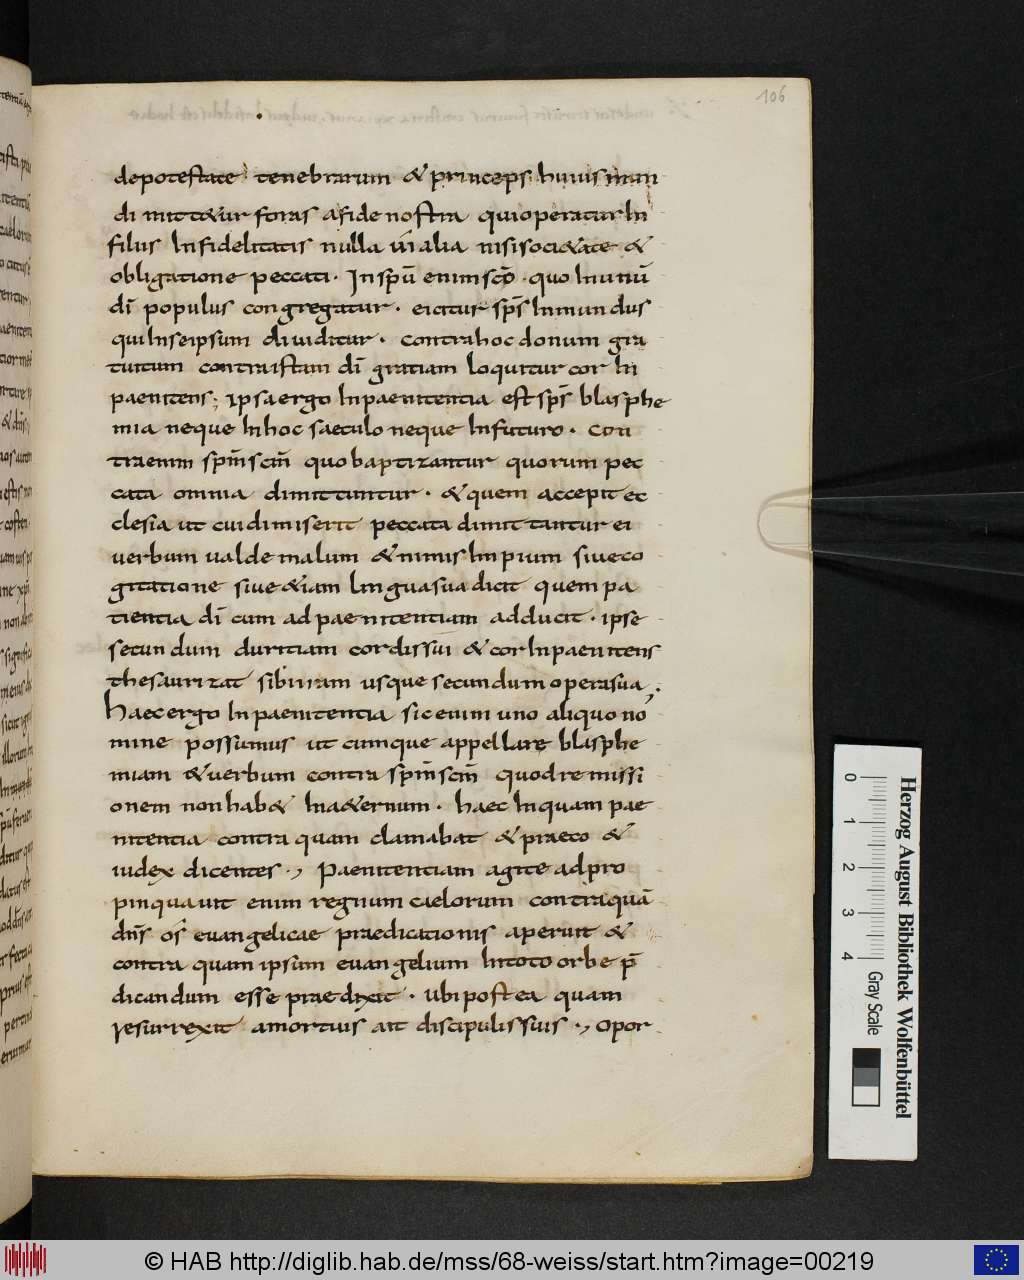 106
depotestate tenebrarum & princeps huius mun
di mittetur foras a fide nostra qui operatur In
filius Infidelitatis nulla uī alia nisi soci&ate &
obligatione peccati · In spū enim scō · quo In unū
dī populus congregatur · eicitur sp̄s Inmundus
qui Inseipsum diuiditur · contra hoc donum gra
tuitum contra istam dī gratiam loquitur cor In
paenitens; ipsa ergo Inpaenitentia est sp̄s blasphe
mia neque In hoc saeculo neque In futuro · Con
tra enim spm̄ scm̄ quo baptizantur quorum pec
cata omnia dimittuntur · & quem accepit ec
clesia ut cui dimiserit peccata dimittantur ei
uerbum ualde malum & nimis Impium siue co
gitatione siue &iam lingua sua dicit quem pa
tientia dī cum ad paenitentiam adducit · ipse
secundum duritiam cordis sui & cor Inpaenitens
thesaurizat sibi iram usque secundum opera sua,·
haec ergo Inpaenitentia sic enim uno aliquo no
mine possumus ut cumque appellare blasphe
miam & uerbum contra spm̄ scm̄ quod remissi
onem non hab& In a&ernum · haec Inquam pae
nitentia contra quam clamabat & praeco &
iudex dicentes ·, Paenitentiam agite adpro
pinquauit enim regnum caelorum contra quā
dn̄s ōs euangelicae praedicationis aperuit &
contra quam ipsum euangelium In toto orbe p̄
dicandum esse praedixit · ubi postea quam
resurrexit a mortuis ait discipulis suis ·, opor
0 1 2 3 4
Herzog August Bibliothek Wolfenbüttel
Gray Scale
© HAB http://diglib.hab.de/mss/68-weiss/start.htm?image=00219